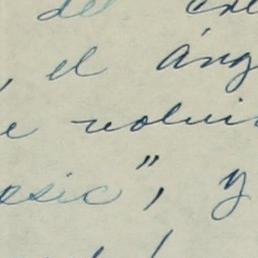 del
, el áng
e volvi
osic", y